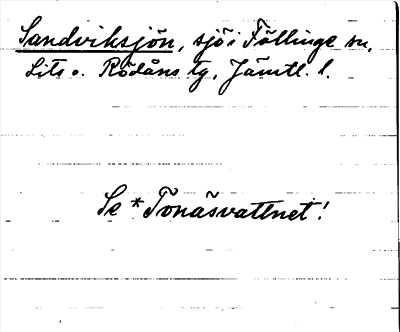 Sandviksjön, sjö i Föllinge sn,
Lits o. Rödöns tg, Jämtl. l.
Se *Tonåsvattnet!